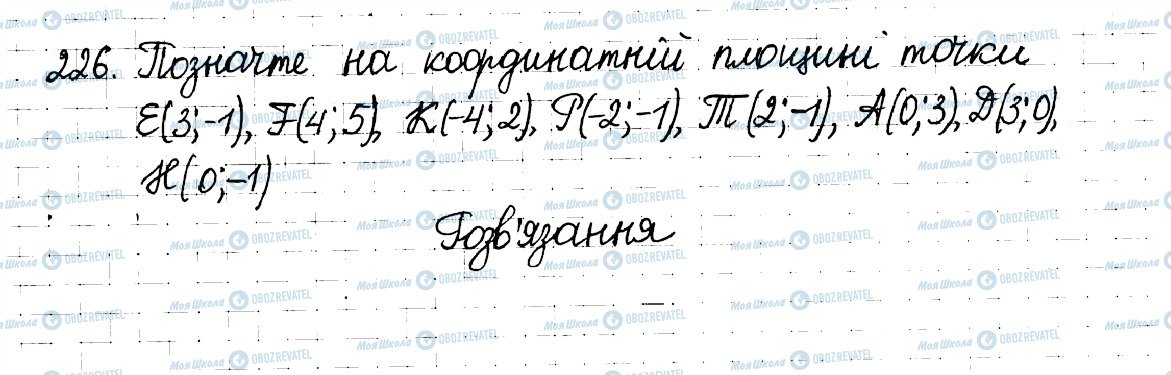 226. Позначте на координатній площині точки
E(3;-1), F(4;5), K(-4;2), P(-2;-1), T(2;-1), A(0;3), D(3;0),
H(0;-1)
Розв'язання